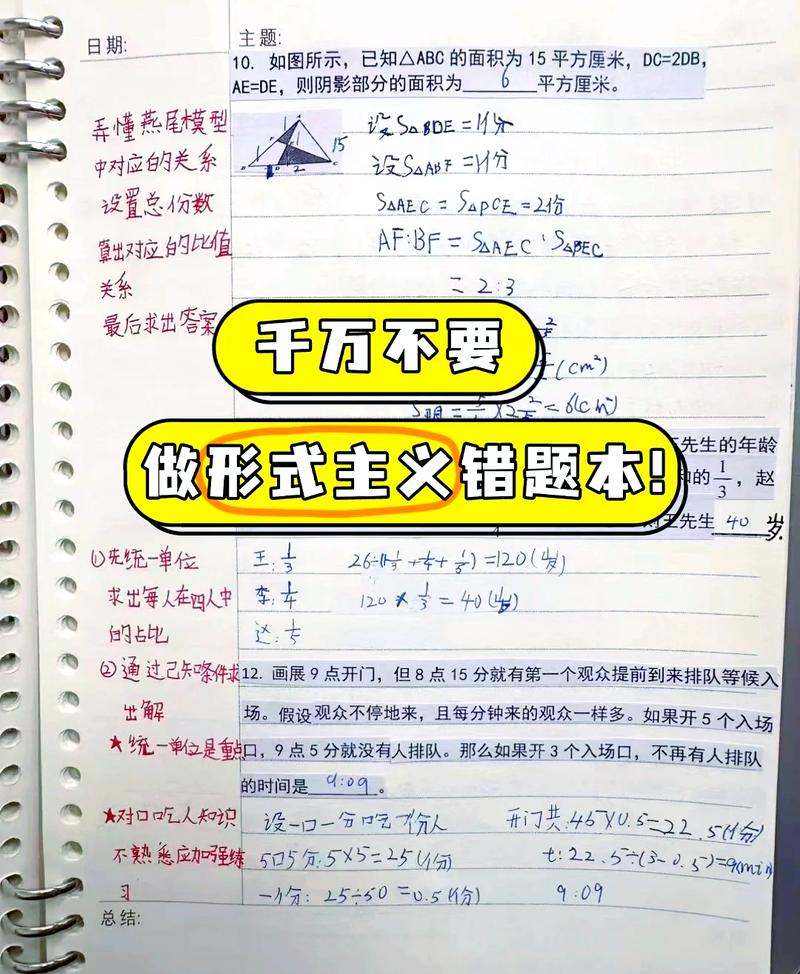 日期:
主题:
10. 如图所示，已知△ABC的面积为15平方厘米，DC=2DB，
AE=DE，则阴影部分的面积为 6 平方厘米。
弄懂燕尾模型
中对应的关系
设置总份数
算出对应的比值
关系
最后求出答案
15
设S△BDE=1份
设S△ABF=1份
S△AEC=S△DCE=2份
AF:BF=S△AEC:S△BEC
=2:3
(cm²)
=6(cm²)
千万不要
做形式主义错题本!
王先生的年龄
的1/3，赵
王先生 40 岁.
①先统一单位
求出每人在四人中
的占比
②通过已知条件求
出解
★统一单位是重点
王:1/3
李:1/4
赵:1/5
=120(岁)
120×1/3=40(岁)
12. 画展9点开门，但8点15分就有第一个观众提前到来排队等候入
场。假设观众不停地来，且每分钟来的观众一样多。如果开5个入场
口，9点5分就没有人排队。那么如果开3个入场口，不再有人排队
的时间是 9:09 。
★对口吃人知识
不熟悉应加强练
习
设一口一分口吃1份人
5口5分:5×5=25(份)
一个份:25÷50=0.5(份)
开门共:45×0.5=22.5(份)
t:22.5÷(3-0.5)=9(min)
9:09
总结: